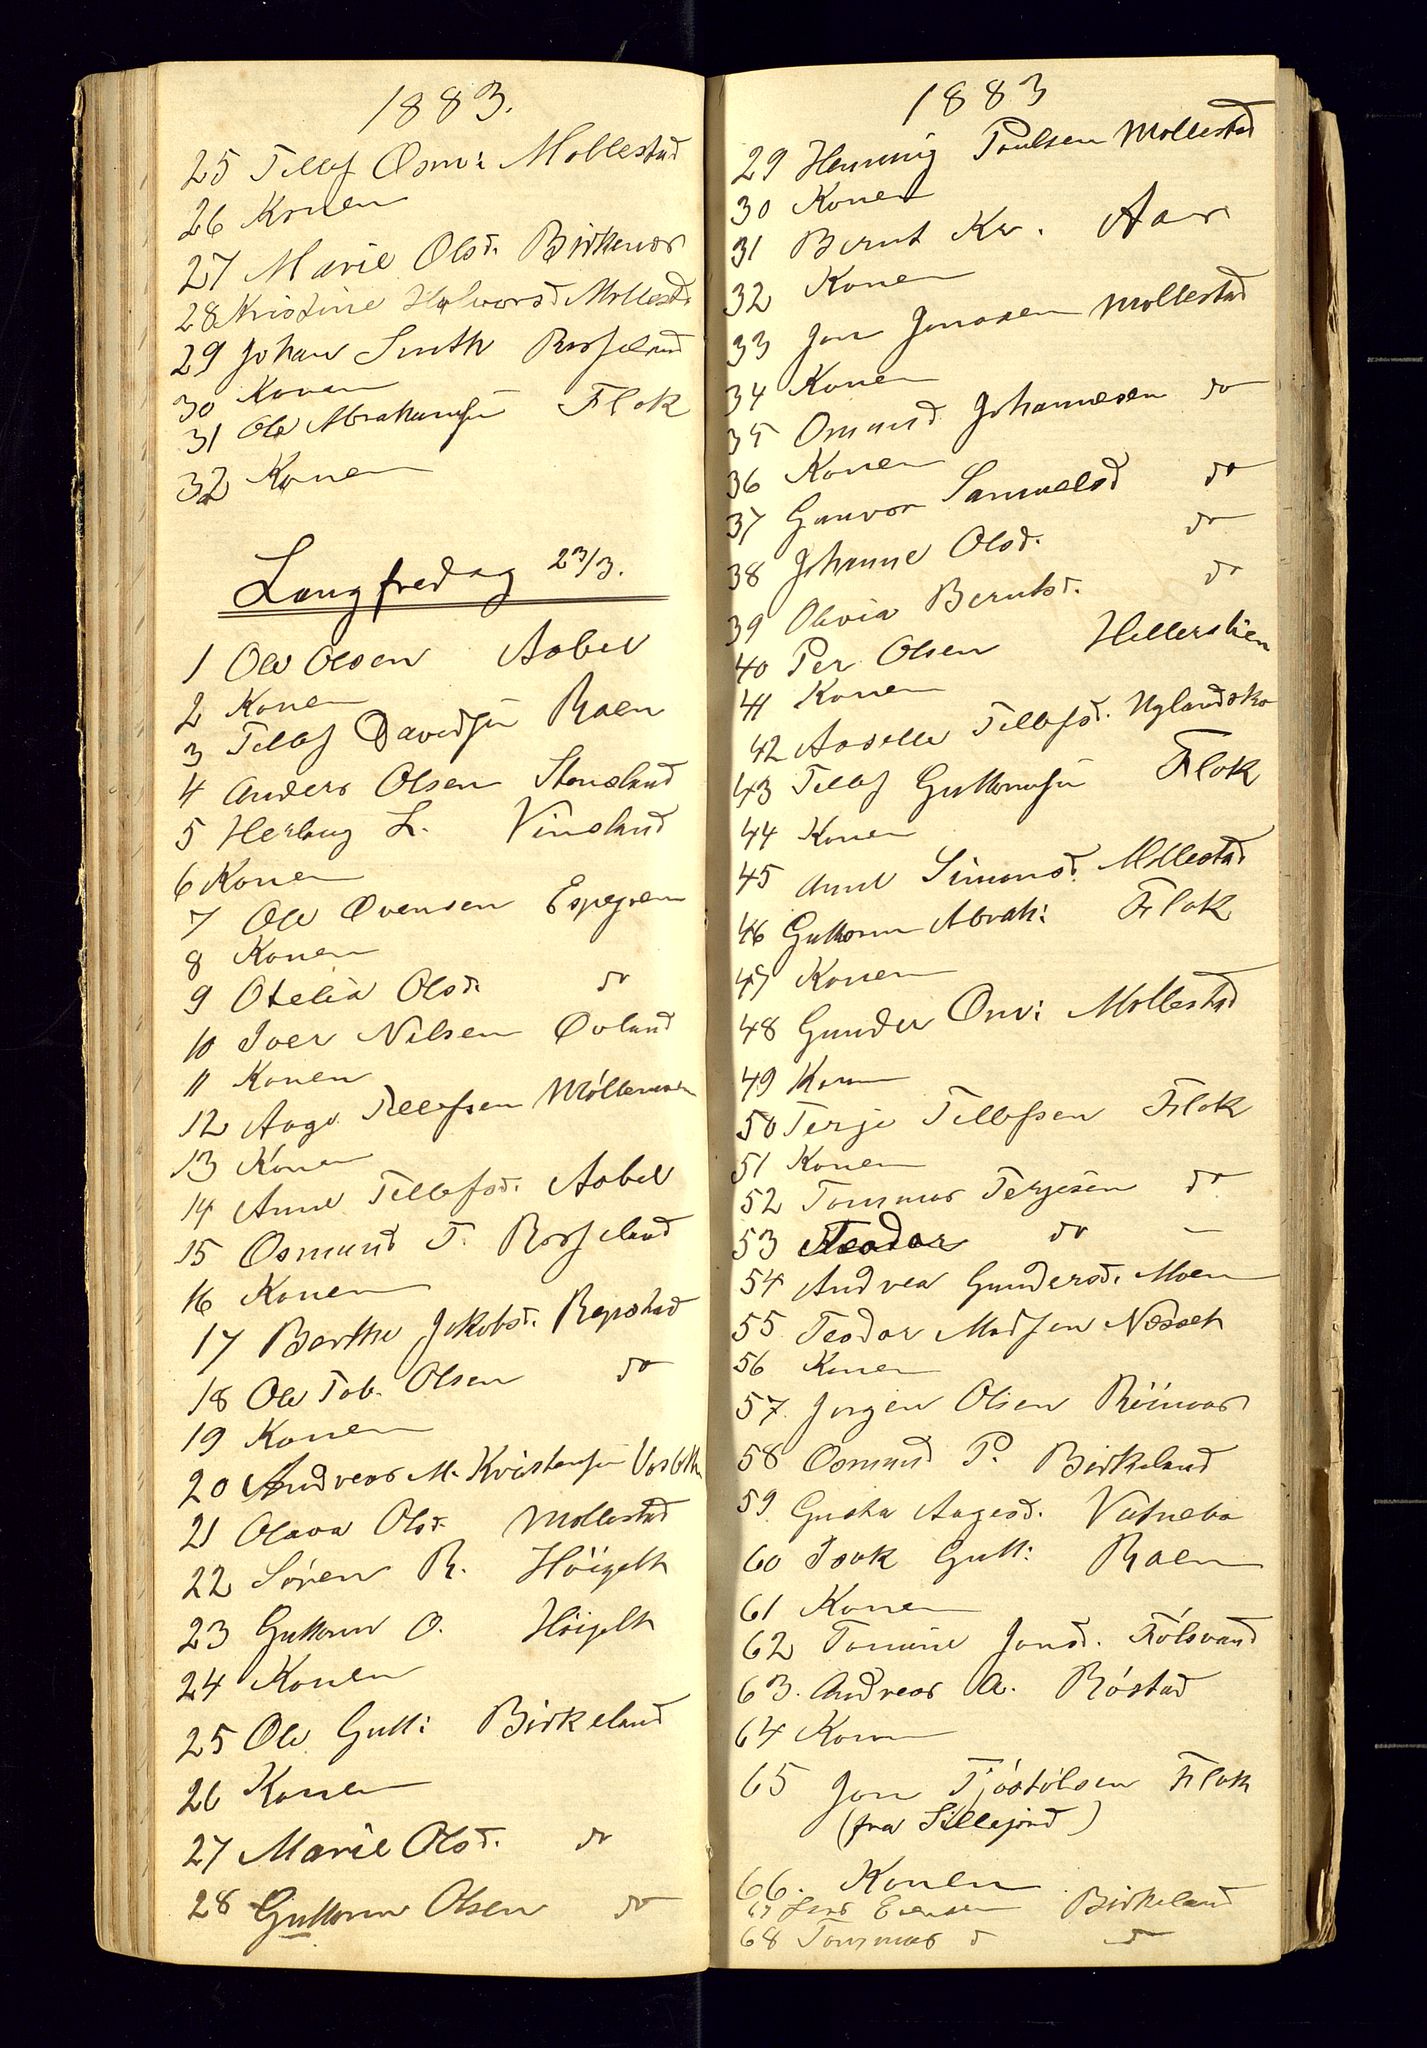 1883.
25 Tellef Osm: Mollestad
26 Konen
27 Marie Olsd. Birkenes
28 Kristine Halvorsd Mollestad
29 Johan Smith Rosseland
30 Konen
31 Ole Abrahamsen Flak
32 Konen
Langfredag 23/3.
1 Ole Olsen Aabel
2 Konen
3 Tellef Davidsen Raen
4 Anders Olsen Stensland
5 Herlaug L. Vinsland
6 Konen
7 Ole Evensen Espegren
8 Konen
9 Otelia Olsd. do
10 Iver Nilsen Øvland
11 Konen
12 Aage Tellefsen Möllermoen
13 Konen
14 Anne Tellefsd. Aabel
15 Osmund T. Rosseland
16 Konen
17 Berthe Jakobsd. Repstad
18 Ole Tob. Olsen do
19 Konen
20 Andreas M. Kristensen
21 Olava Olsd. Mollestad
22 Sören R. Höigelt
23 Guttorm O. Höigelt
24 Konen
25 Ole Gutt: Birkeland
26 Konen
27 Marie Olsd. do
28 Guttorm Olsen do
1883
29 Henning Poulsen Mollestad
30 Konen
31 Bernt Kr. Aas
32 Konen
33 Jon Jonasen Mollestad
34 Konen
35 Osmund Johannesen do
36 Konen
37 Gunvor Samuelsd do
38 Johanne Olsd. do
39 Olivia Berntsd. do
40 Per Olsen Hellerslien
41 Konen
42 Aaselle Tellefsd.
43 Tellef Guttormsen Flak
44 Konen
45 Anne Simonsd. Mollestad
46 Guttorm Abrah: Flak
47 Konen
48 Gunder Osm: Mollestad
49 Konen
50 Terje Tellefsen Flak
51 Konen
52 Tommas Terjesen do
53 Teodor do –
54 Andrea Gundersd. Moen
55 Teodor Madsen Næset
56 Konen
57. Jörgen Olsen Röinaas
58 Osmund P. Birkeland
59. Guska Aagesd. Vatnebo
60 Isak Gutt: Raen
61 Konen
62 Tomine Jonsd. Fölsvand
63. Andreas A. Röstad
64 Konen
65 Jon Tjöstölsen Flak
(fra Sillejord)
66. Konen
67 Evensen Birkeland
68 Tommas d do